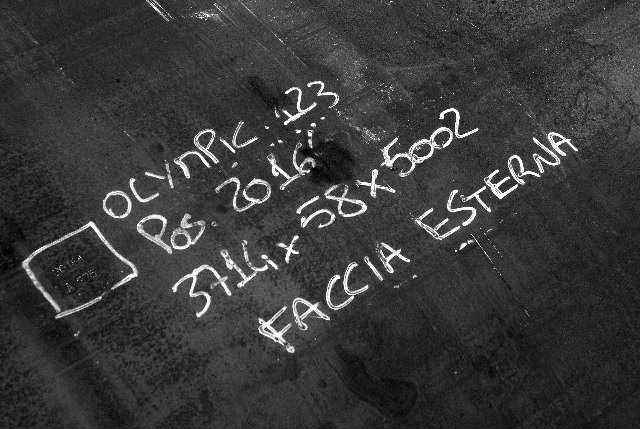 OLYMPIC. 123
Pos. 2016
3714x58x5002
FACCIA ESTERNA